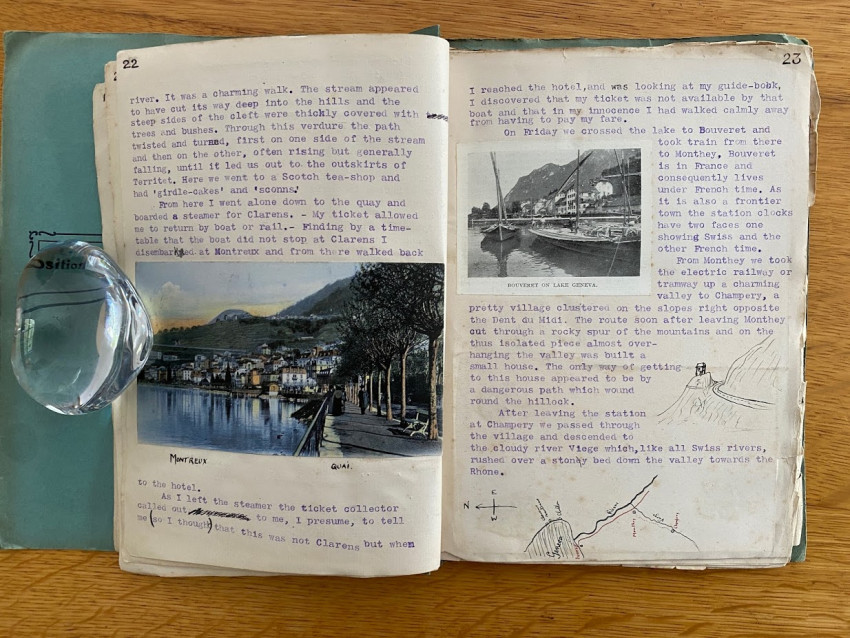 22
river. It was a charming walk. The stream appeared
to have cut its way deep into the hills and the
steep sides of the cleft were thickly covered with
trees and bushes. Through this verdure the path
twisted and turned, first on one side of the stream
and then on the other, often rising but generally
falling, until it led us out to the outskirts of
Territet. Here we went to a Scotch tea-shop and
had 'girdle-cakes' and 'sconns.'
From here I went alone down to the quay and
boarded a steamer for Clarens. - My ticket allowed
me to return by boat or rail.- Finding by a time-
table that the boat did not stop at Clarens I
disembarked at Montreux and from there walked back
MONTREUX
QUAI.
to the hotel.
As I left the steamer the ticket collector
called out to me, I presume, to tell
me (so I though) that this was not Clarens but when
sition
23
I reached the hotel, and was looking at my guide-book,
I discovered that my ticket was not available by that
boat and that in my innocence I had walked calmly away
from having to pay my fare.
On Friday we crossed the lake to Bouveret and
took train from there
to Monthey. Bouveret
is in France and
consequently lives
under French time. As
it is also a frontier
town the station clocks
have two faces one
showing Swiss and the
other French time.
BOUVERET ON LAKE GENEVA.
From Monthey we took
the electric railway or
tramway up a charming
valley to Champery, a
pretty village clustered on the slopes right opposite
the Dent du Midi. The route soon after leaving Monthey
cut through a rocky spur of the mountains and on the
thus isolated piece almost over-
hanging the valley was built a
small house. The only way of getting
to this house appeared to be by
a dangerous path which wound
round the hillock.
After leaving the station
at Champery we passed through
the village and descended to
the cloudy river Viege which, like all Swiss rivers,
rushed over a stoney bed down the valley towards the
Rhone.
N
E
Geneva
Rhone